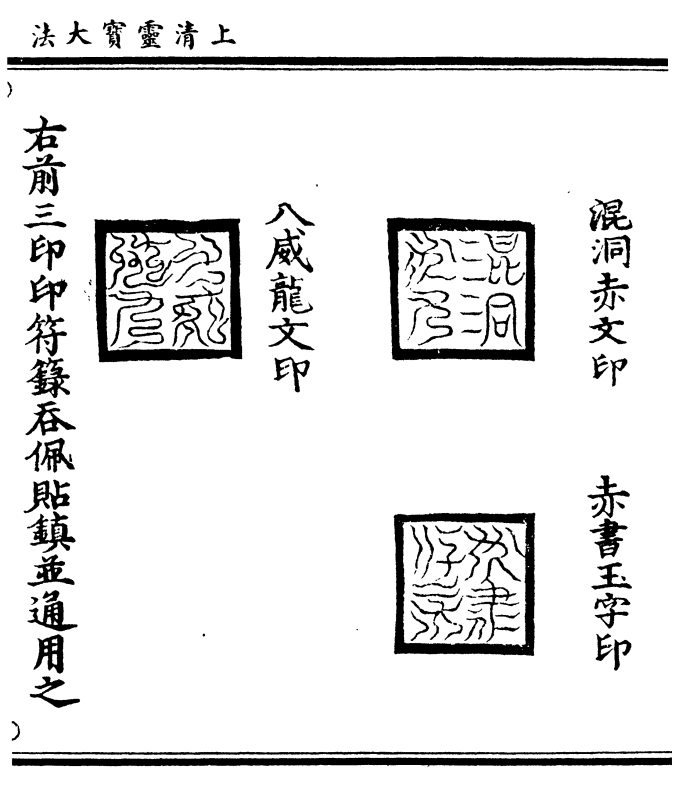 上清靈寶大法
混洞赤文印
赤書玉字印
八威龍文印
右前三印印符籙吞佩貼鎮並通用之